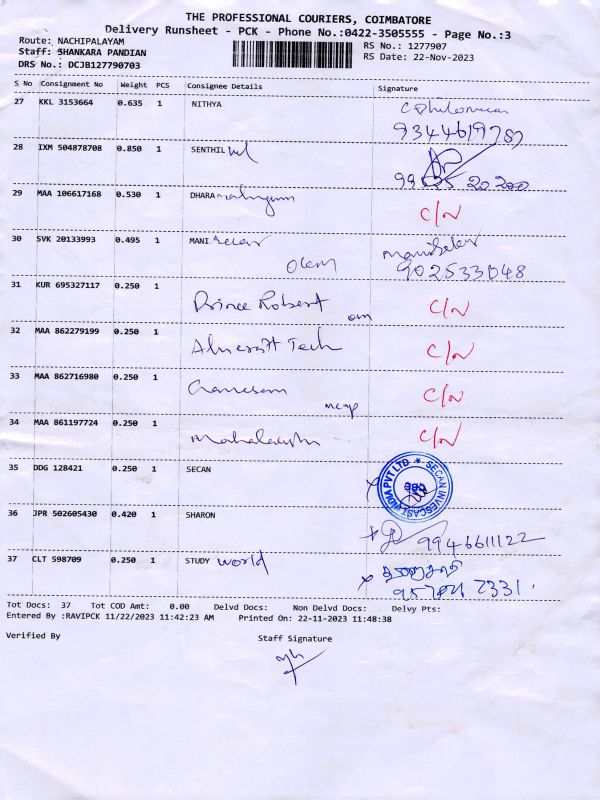 THE PROFESSIONAL COURIERS, COIMBATORE
Delivery Runsheet - PCK - Phone No.:0422-3505555 - Page No.:3
Route: NACHIPALAYAM
RS No.: 1277907
Staff: SHANKARA PANDIAN
RS Date: 22-Nov-2023
DRS No.: DCJB127790703
S No Consignment No Weight PCS Consignee Details Signature
27 KKL 3153664 0.635 1 NITHYA
9344619787
28 IXM 504878708 0.850 1 SENTHIL
29 MAA 106617168 0.530 1 DHARA C/N
30 SVK 20133993 0.495 1 MANI
31 KUR 695327117 0.250 1 Prince Robert C/N
32 MAA 862279199 0.250 1 Tech C/N
33 MAA 862716980 0.250 1 C/N
34 MAA 861197724 0.250 1 C/N
35 DDG 128421 0.250 1 SECAN
SECAN INVESCAST INDIA PVT LTD
36 JPR 502605430 0.420 1 SHARON
9946611122
37 CLT 598709 0.250 1 STUDY World
Tot Docs: 37 Tot COD Amt: 0.00 Delvd Docs: Non Delvd Docs: Delvy Pts:
Entered By :RAVIPCK 11/22/2023 11:42:23 AM Printed On: 22-11-2023 11:48:38
Verified By Staff Signature